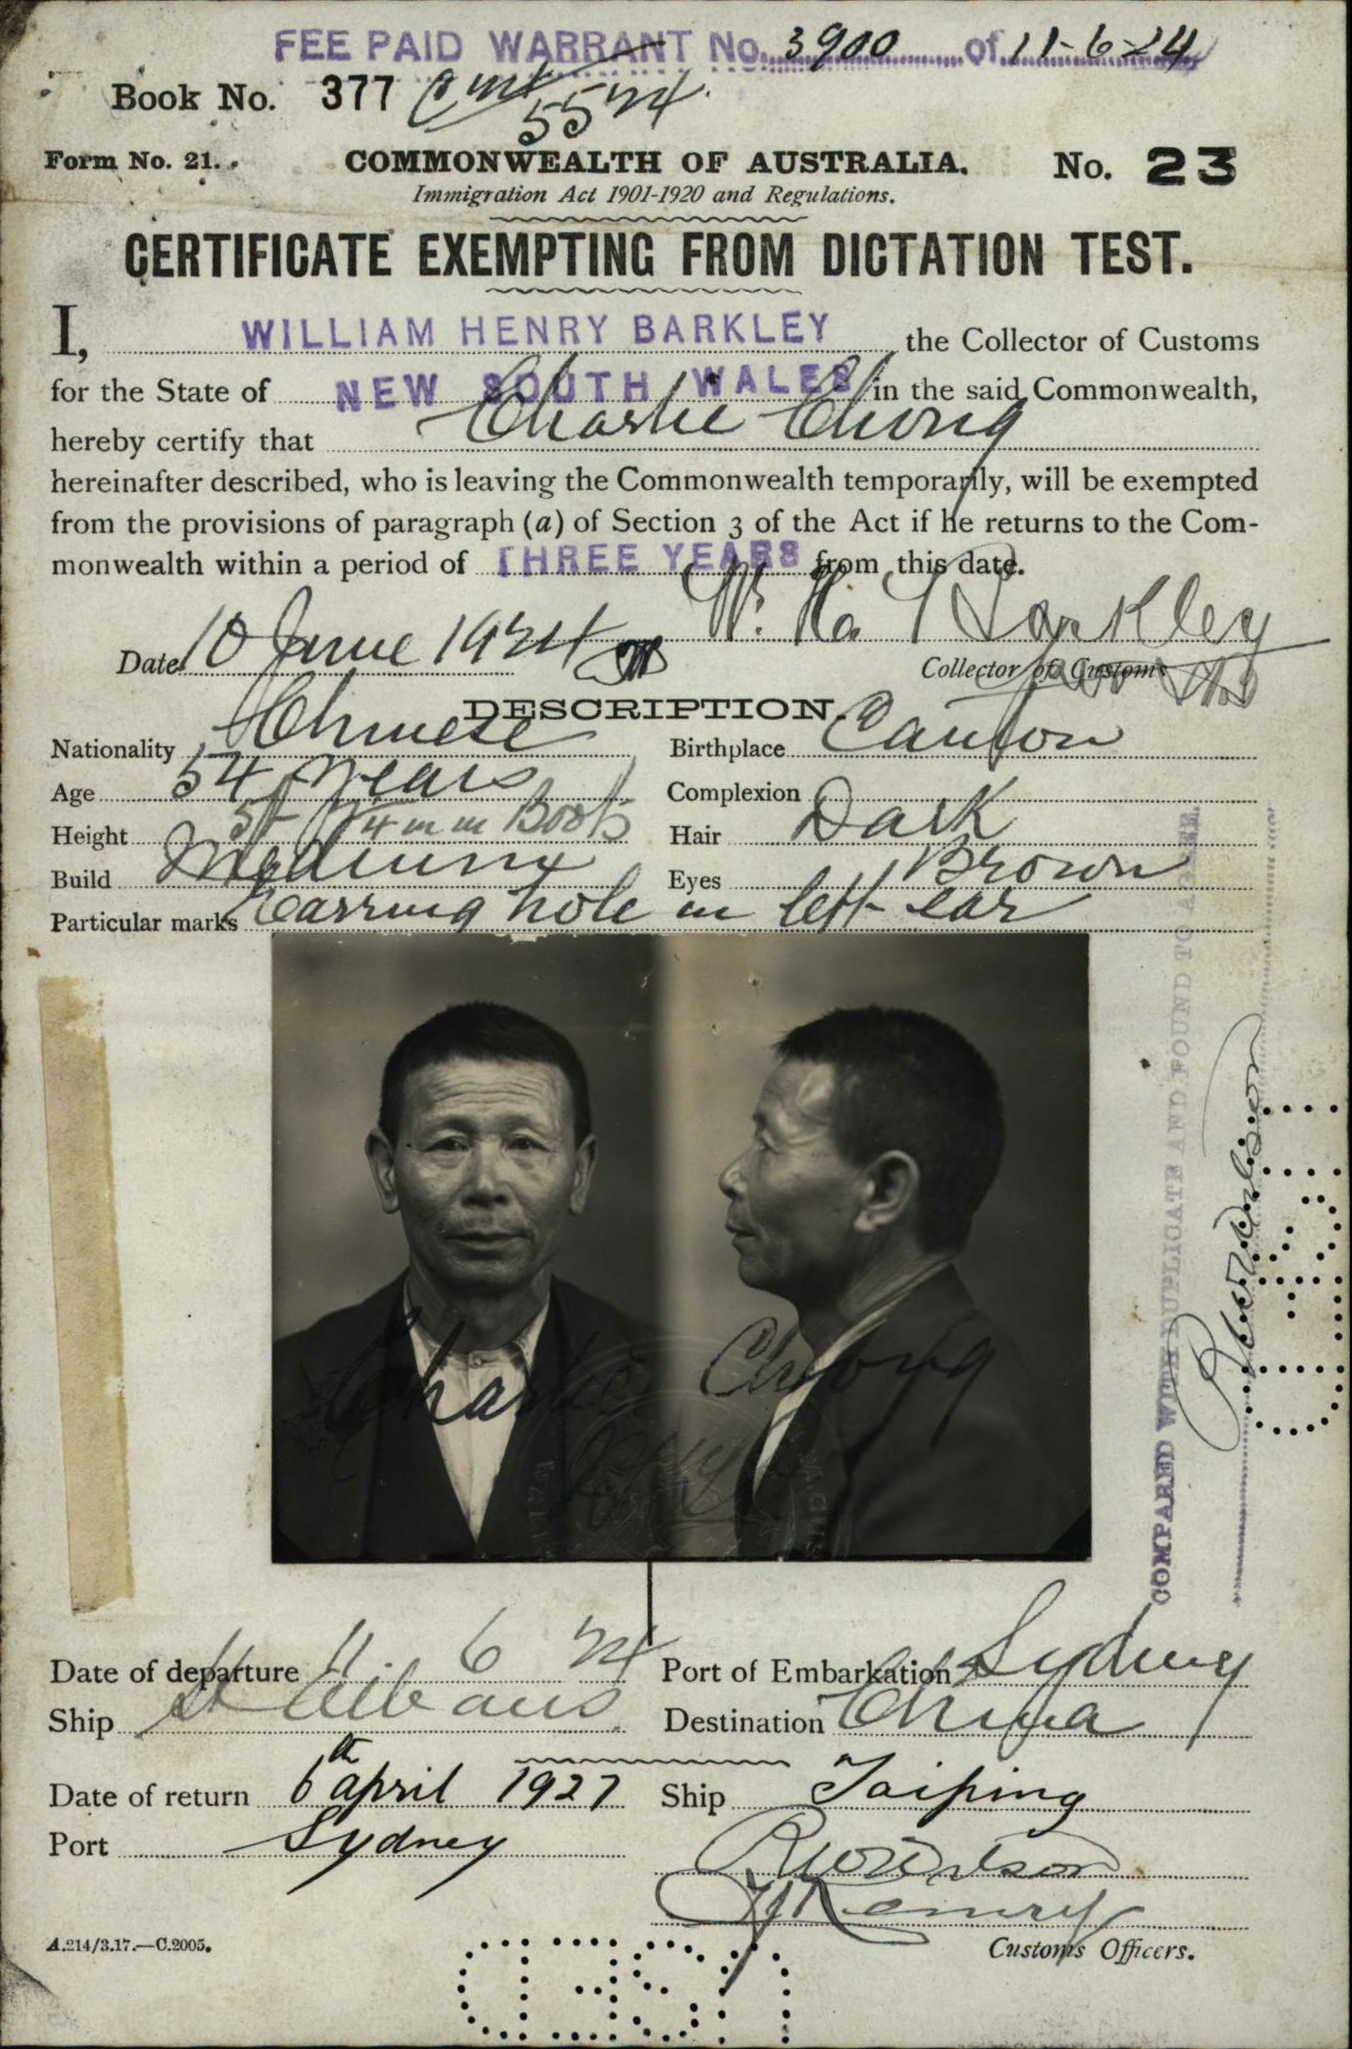 FEE PAID WARRANT No. 3900 of 11-6-24
Book No. 377
5524
Form No. 21. COMMONWEALTH OF AUSTRALIA. No. 23
Immigration Act 1901-1920 and Regulations.
CERTIFICATE EXEMPTING FROM DICTATION TEST.
I, WILLIAM HENRY BARKLEY the Collector of Customs
for the State of NEW SOUTH WALES in the said Commonwealth,
hereby certify that Charlie Chong
hereinafter described, who is leaving the Commonwealth temporarily, will be exempted
from the provisions of paragraph (a) of Section 3 of the Act if he returns to the Com-
monwealth within a period of THREE YEARS from this date.
W. H. Barkley
Date 10 June 1924
Collector of Customs
DESCRIPTION.
Nationality Chinese Birthplace Canton
Age 54 years Complexion
Height 5ft in Boots Hair Dark
Build Medium Eyes Brown
Particular marks Earring hole in left ear
COMPARED WITH DUPLICATE AND FOUND TO AGREE.
Charlie Chong
Date of departure 11. 6 24 Port of Embarkation Sydney
Ship St Albans Destination China
Date of return 6th April 1927 Ship Taiping
Port Sydney
Customs Officers.
A.214/3.17.—C.2005.